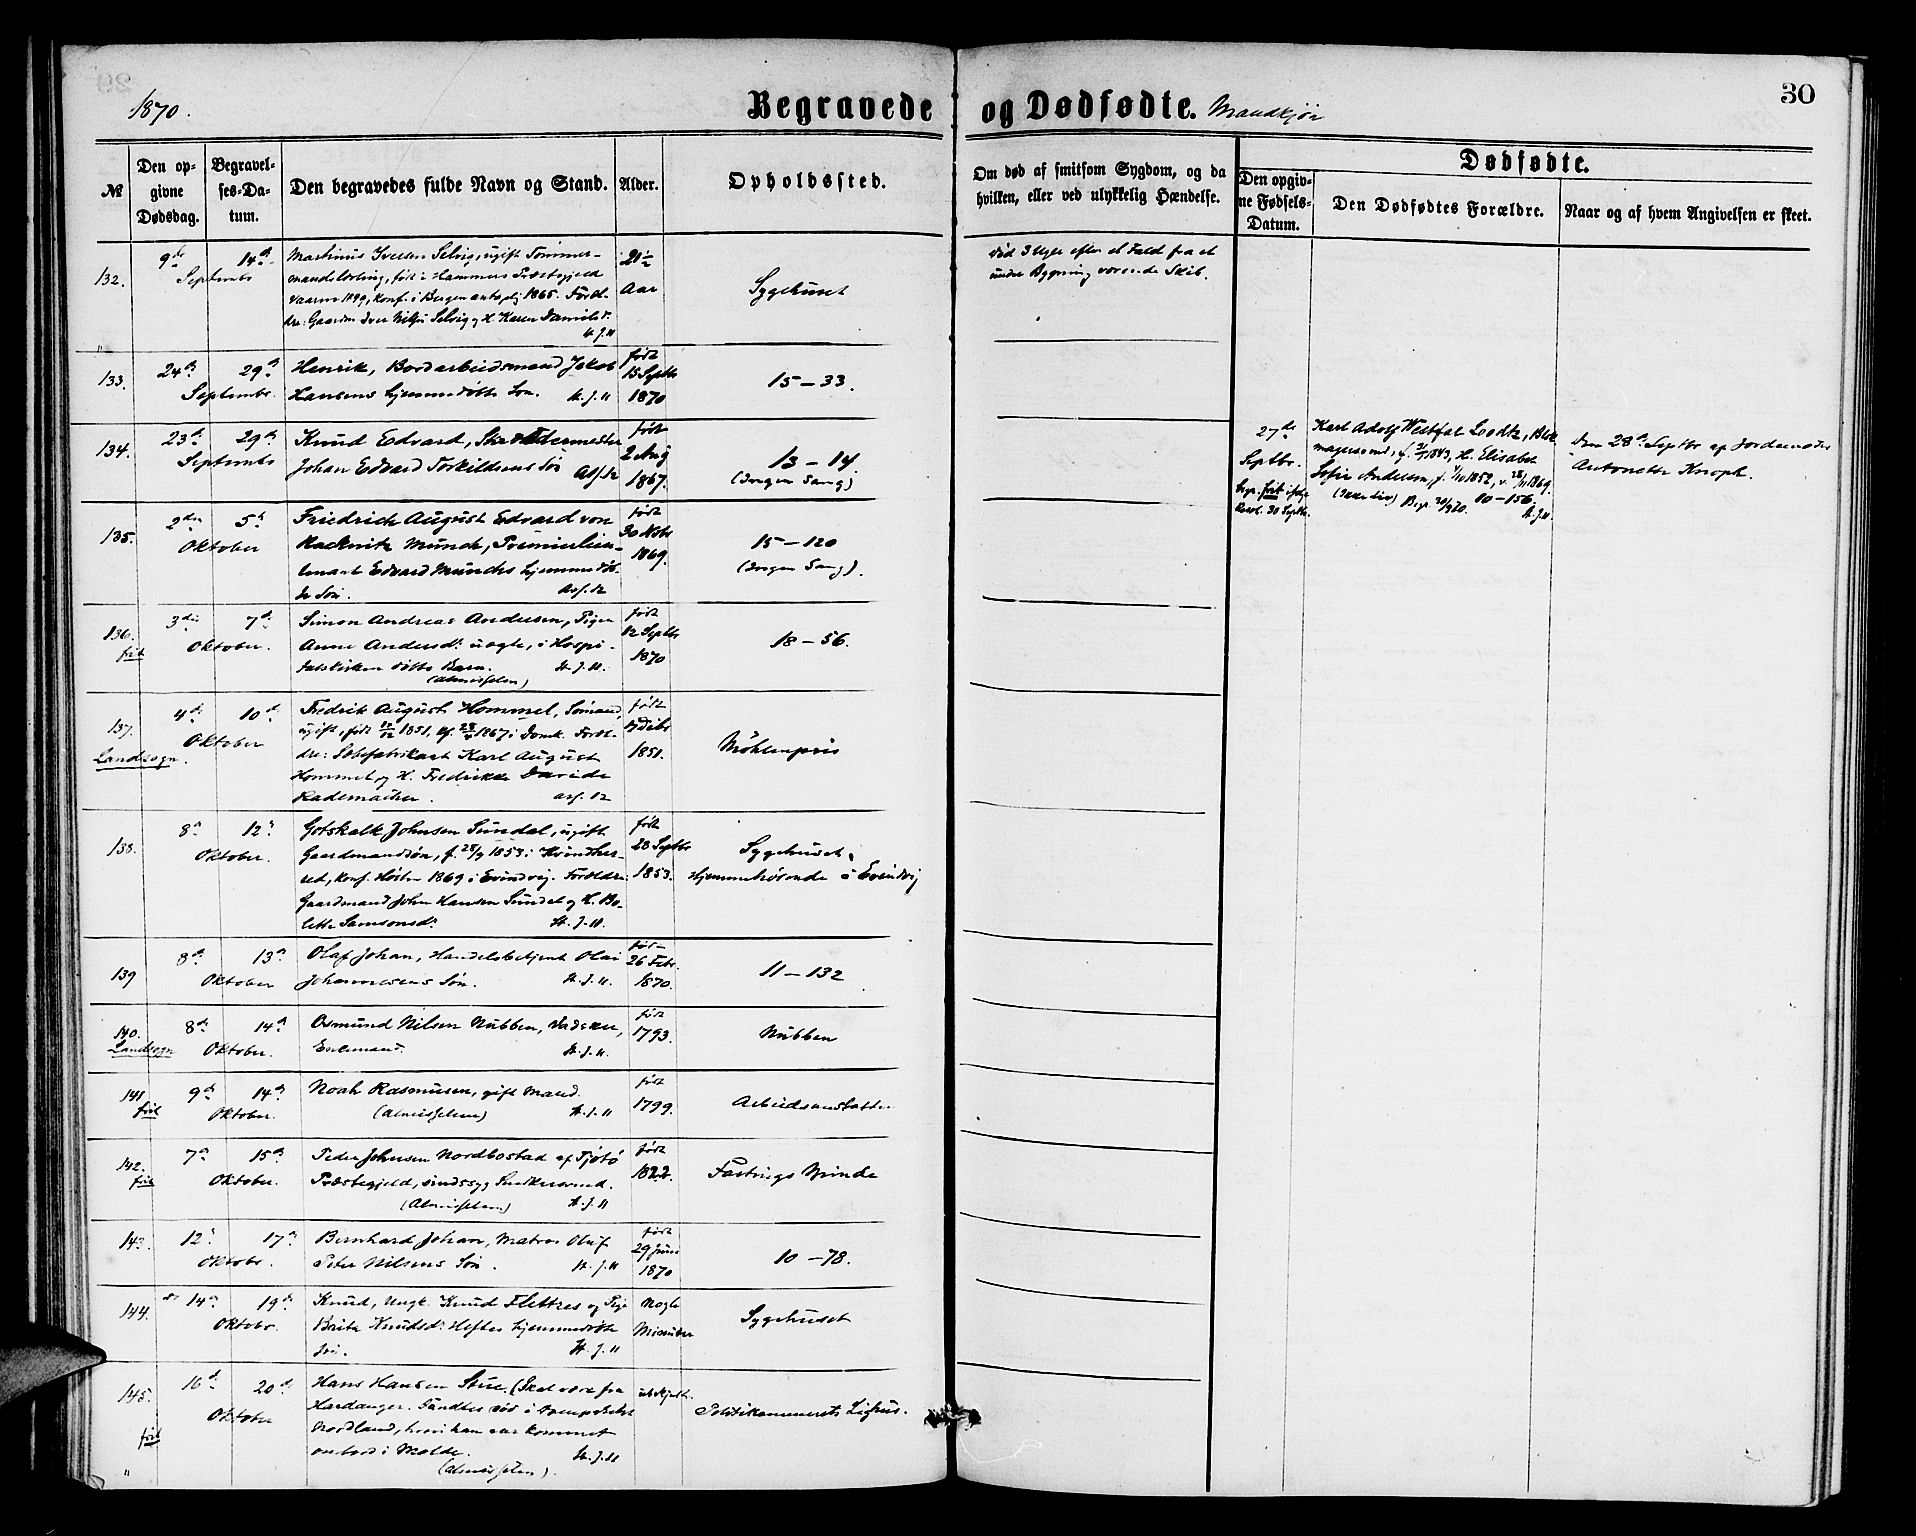 1870.
Begravede og Dødfødte. Mandkjøn
30
№
Den opgivne Dødsdag.
Begravelses-Datum.
Den begravedes fulde Navn og Stand.
Alder.
Opholdssted.
Om død af smitsom Sygdom, og da
hvilken, eller ved ulykkelig Hændelse.
Dødfødte.
Den opgivne Fødsels-Datum.
Den Dødfødtes Forældre.
Naar og af hvem Angivelsen er skeet.
132.
9de 14de
September
Martinus Iversen Selvig, ugift Tømmer-
mandslærling, født i Hammers Præstegjeld
Karen Danielsd.
21½
Aar
Sygehuset
død 3 Uger efter et Fald fra et
under Bygning værende Skib.
133.
24de 29de
Septembr.
Henrik, Bordarbeidsmand Jakob
Hansens hjemmedøbte Søn. St. J. H
født
15 Septbr
1870
15 – 33.
134.
23de 29de
Septembr
Knud Edvard, Skræddermester
Johan Edvard Torkildsens Søn
født
2 Aug
1867.
13 – 14
27de
Septbr.
Begr. frit ifølge
Resol. 30 Septbr.
Karl Adolf Westfal Lodtz, Blok-
magersvend, H. Elisabet
Sofie Andersen,
10 – 156.
St. J. H.
den 28de Septbr af Jordemoder
Antonette Knoph.
135.
2den 5te
Oktober
Friedrich August Edvard von
Racknitz Munch, Premierlieu-
tenant Edvard Munchs hjemmedøb-
te Søn.
født
30 Novbr
1869.
15 – 120
136.
frit
3die 7de
Oktober.
Simon Andreas Andersen, Pigen
Anne Andersd. uægte, i Hospi-
talskirken døbte Barn. St. J. H.
(Almisselem)
født
12 Septbr
1870
18 – 56.
137.
Landsogn.
4de 10de
Oktober
Fredrik August Hommel, Sømand,
ugift, født 17/12 1851, i Domk. Foræl-
dre: Karl August
Hommel og H. Fredrikke Davide
Rademacher.
født
17 Debr
1851.
Møhlenpris
138.
8de 12te
Oktober.
Gotskalk Johnsen Sundal, ugift
Gaardmandssøn, f. 28/9 1853 i Kvindher-
red, konf. Høsten 1869 i Evindvig. Forældre:
Gaardmand John Hansen Sundal og H. Bo-
lette Samsonsd. St. J. H.
født
28 Septbr
1853.
Sygehuset,
Hjemmehørende i Evindvig
139
8de 13de
Oktober
Olaf Johan, Handelsbetjent Olai
Johannesens Søn. St. J. H.
født
26 Febr.
1870.
11 – 132
140.
Landsogn
8de 14de
Oktober.
Osmund Nilsen Nubben, Vadsker,
Enkemand. St. J. H.
født
1793.
Nubben
141
frit
9de 14de
Oktober.
Noah Rasmussen, gift Mand.
(Almisselem) St. J. H
født
1799.
Arbeidsanstalten
142.
frit
7de 15de
Oktober.
Peder Johnsen Nordbostad af Tjøtø
Præstegjeld, sindssyg Snedkersvend.
(Almisselem) St. J. H
født
1822.
Fastings Minde
143.
12te 17de
Oktobr.
Bernhard Johan, Matros Oluf
Peter Nilsens Søn. St. J. H
født
29 Juni
1870
10 – 78.
144.
14de 19de
Oktobr.
Knud, Ungk. Knud Flettres og Pige
Brita Knudsd. Heftes hjemmedøbte
Søn. St. J. H
Nogle
Minuter
Sygehuset
145.
frit
16de 20de
Oktober
Hans Hansen Stue. (Skal være fra
Hardanger. Fandtes død i Dampskibet
Nordland, hvori han var kommet
ombord i Molde. St. J. H
(Almisselem).
Politikammerets Lighus.